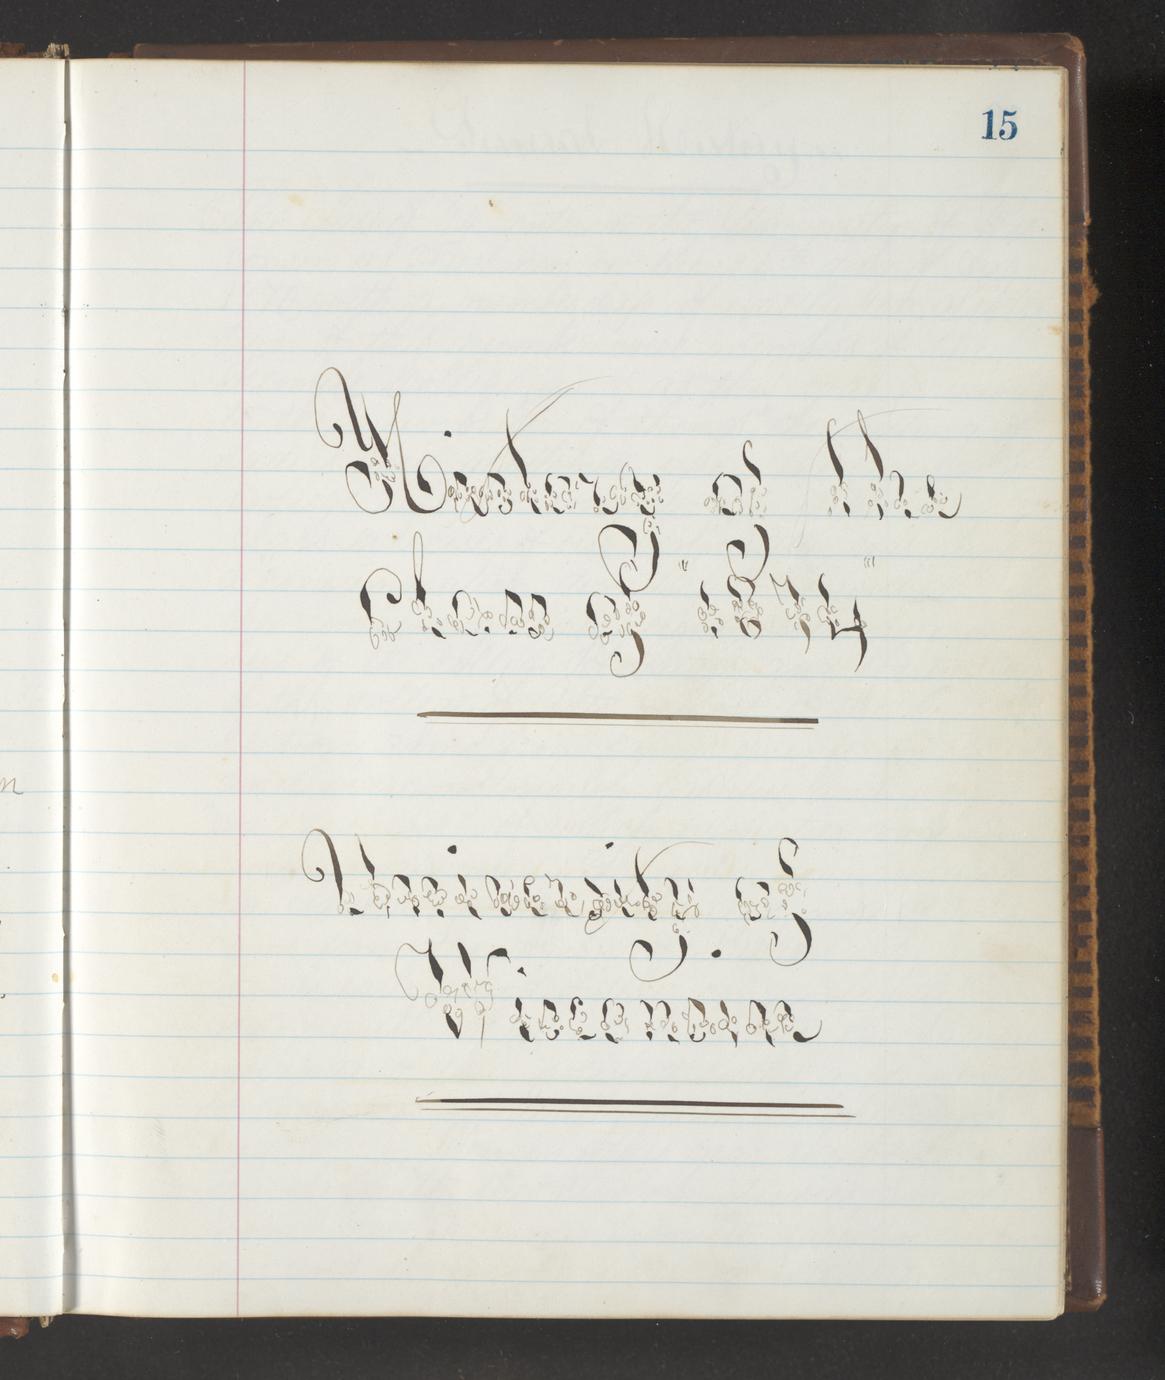 15
History of the
Class of "1874"
University of
Wisconsin